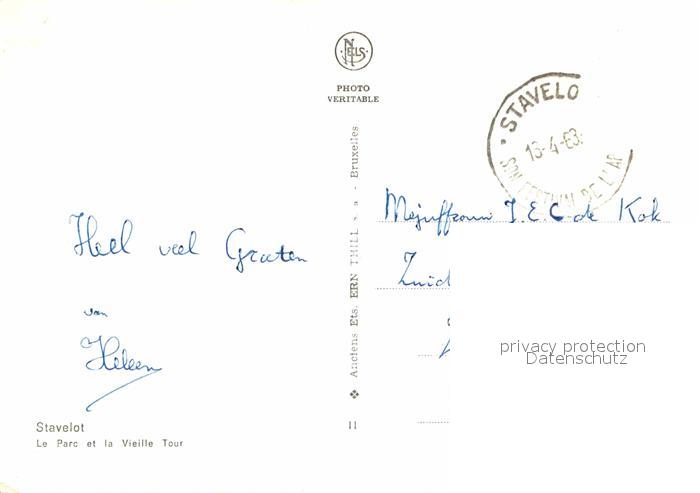 Heel veel Groeten
van
Heleen
Stavelot
Le Parc et la Vieille Tour
NELS
PHOTO
VERITABLE
❖ Anciens Ets. ERN THILL s. a. - Bruxelles
11
STAVELO
13-4-63
SON FESTIVAL DE L'AR
Mejuffrouw I. E. C. de Kok
Zuid
privacy protection
Datenschutz